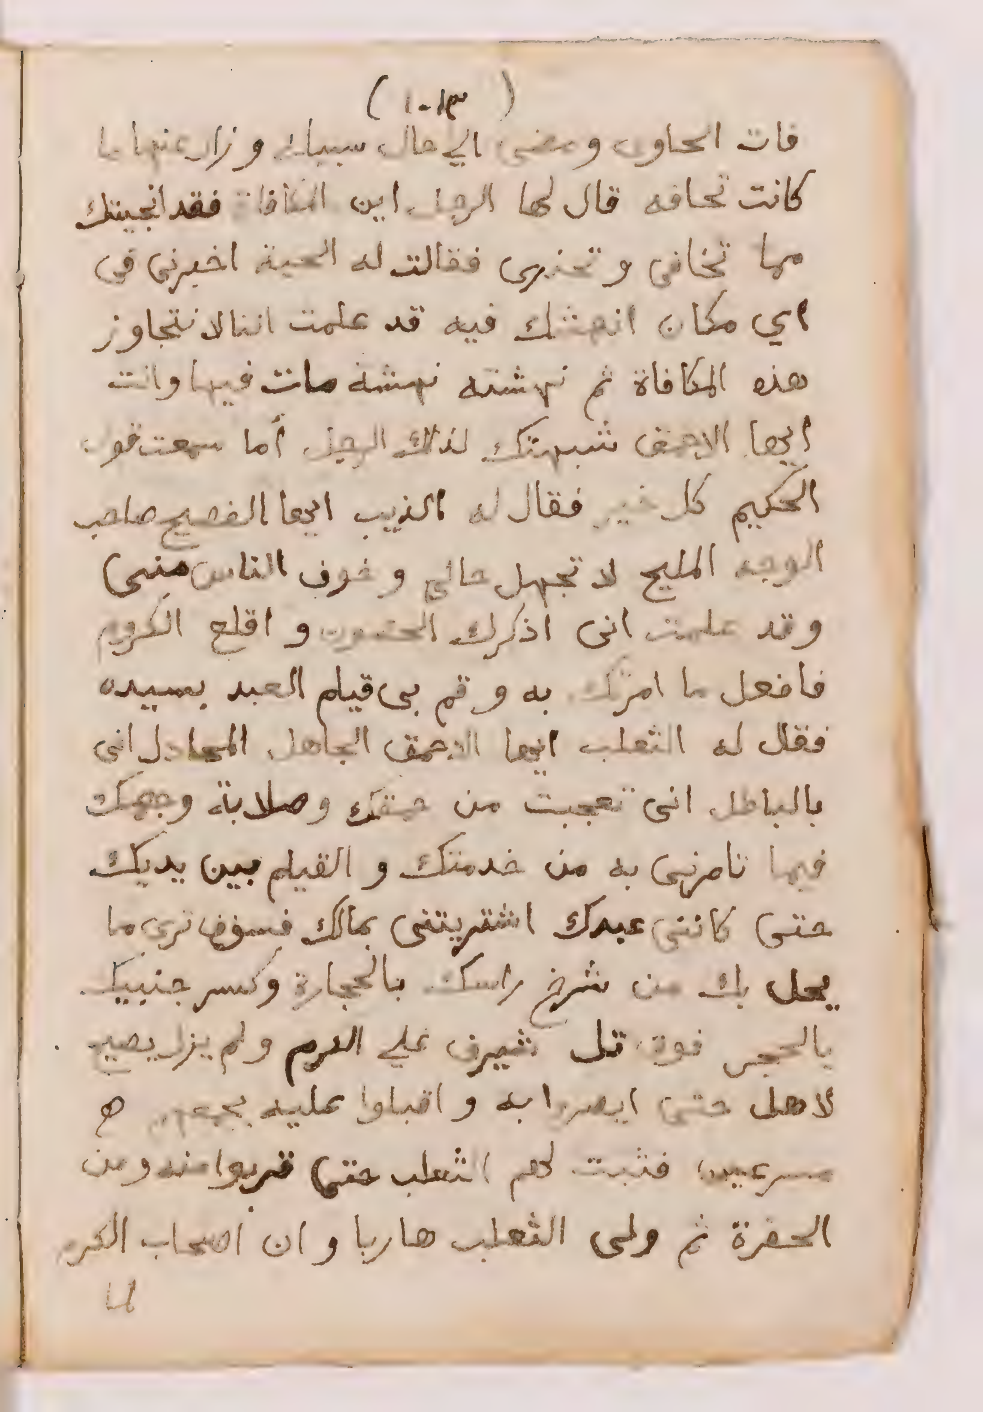 (١٠١٣)
فات الحاوى ومضى الي حال سبيله وزال عنها ما
كانت تحافه قال لها الرجل اين المكافاة فقد انجيتك
مما تخافى وتحذرى فقالت له الحية اخبرنى فى
اي مكان انهشك فيه قد علمت اننا لا نتجاوز
هذه المكافاة ثم نهشته نهشة مات فيها وانت
ايها الاحمق شبهتك لذلك الرجل أما سمعت قول
الحكيم كل خير فقال له الذيب ايها الفصيح صاحب
الوجه المليح لا تجهل حالي وخوف الناس منى
وقد علمت انى اذكرك الحصون و اقلع الكروم
فافعل ما امرتك به وقم بى قيام العبد بسيده
فقال له الثعلب ايها الاحمق الجاهل المجادل انى
بالباطل انى تعجبت من حمقك وصلابة وجهك
فيما تامرنى به من خدمتك و القيام بين يديك
حتى كاننى عبدك اشتريتنى بمالك فسوف ترى ما
يحل بك من شرخ راسك بالحجارة وكسر جنبيك
بالحجر فوق تل يشرف علي الكرم ولم يزل يصيح
لاهل حتى ابصروا به و اقبلوا عليه بجمعهم
مسرعين فثبت لهم الثعلب حتى قربوا منه ومن
الحفرة ثم ولى الثعلب هاربا و ان اصحاب الكرم
لما